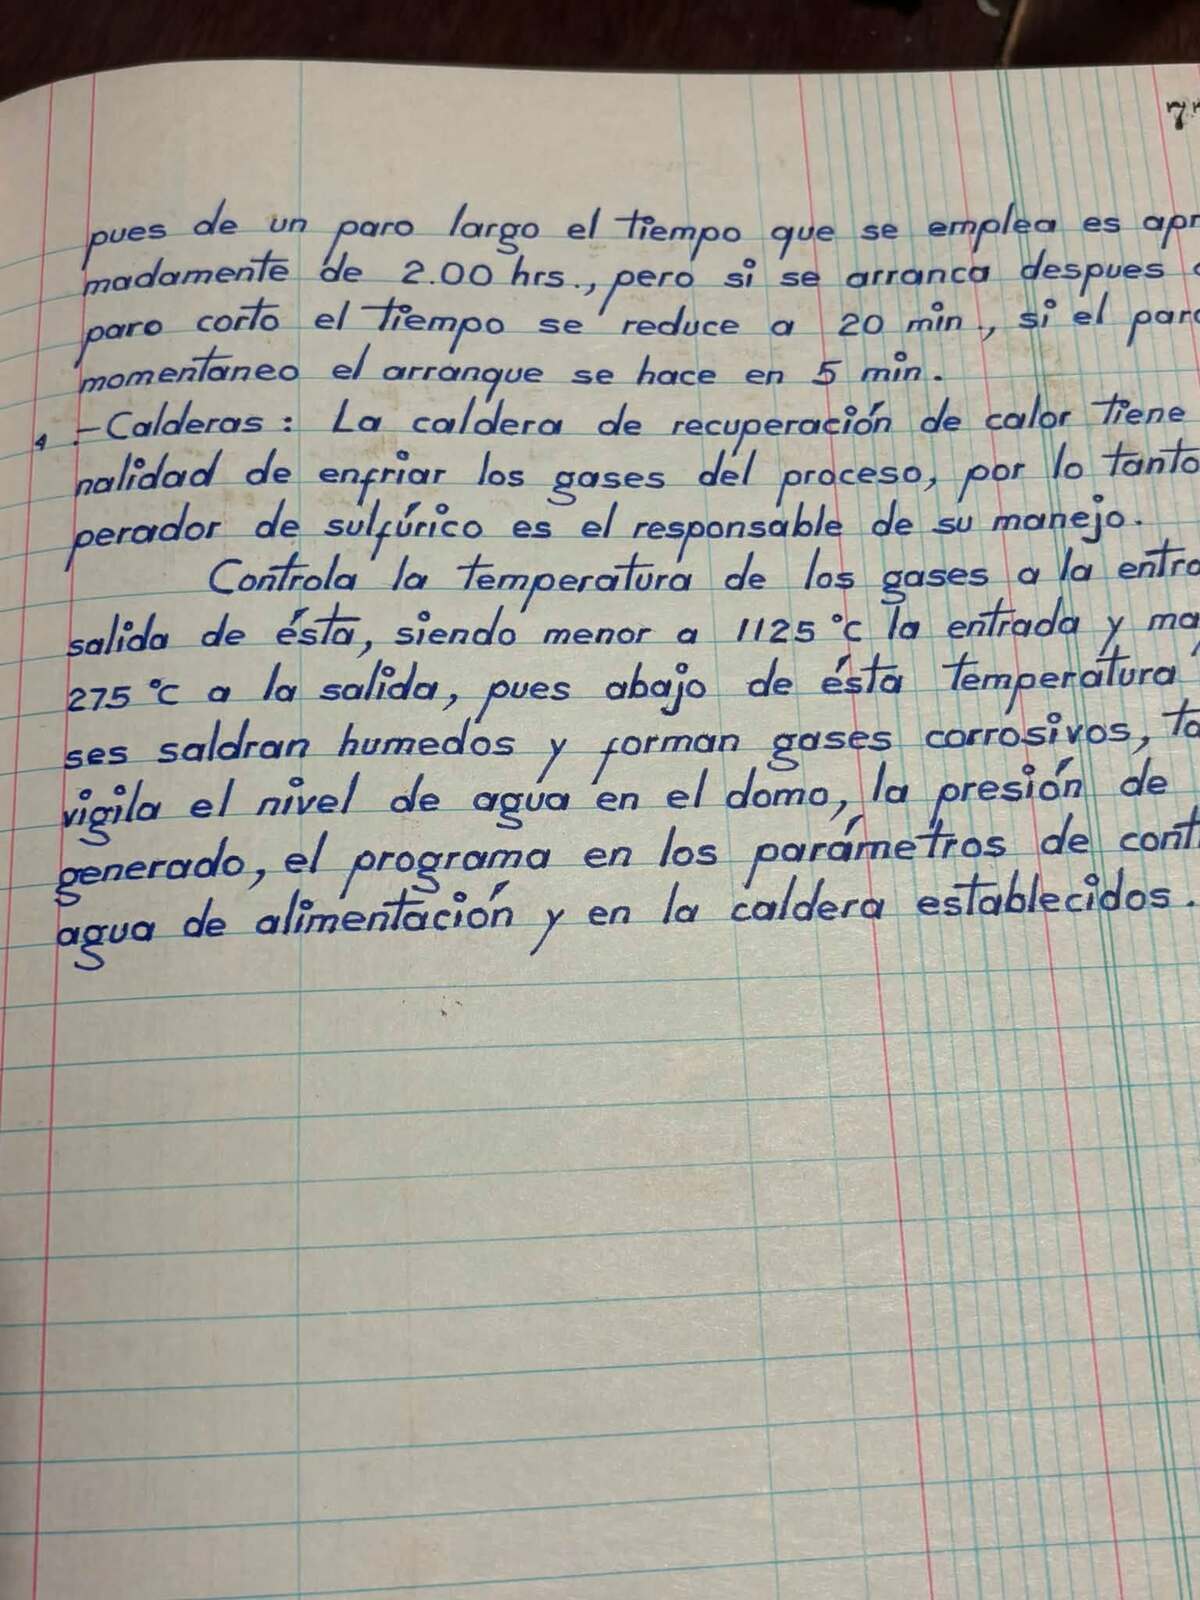 77
pues de un paro largo el tiempo que se emplea es apr
madamente de 2.00 hrs., pero si se arranca despues
paro corto el tiempo se reduce a 20 min., si el paro
momentaneo el arranque se hace en 5 min.
.- Calderas: La caldera de recuperación de calor tiene
nalidad de enfriar los gases del proceso, por lo tanto
perador de sulfúrico es el responsable de su manejo.
Controla la temperatura de los gases a la entra
salida de ésta, siendo menor a 1125 °c la entrada y ma
275 °c a la salida, pues abajo de ésta temperatura
ses saldran humedos y forman gases corrosivos, ta
vigila el nivel de agua en el domo, la presión de
generado, el programa en los parámetros de cont
agua de alimentación y en la caldera establecidos.